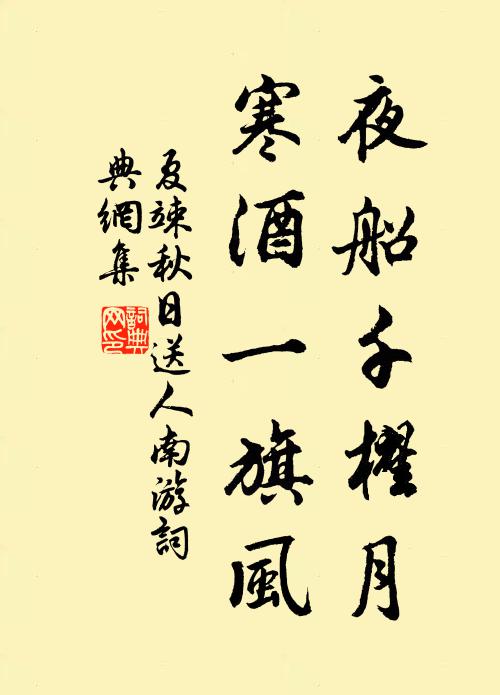 夜船千櫂月
寒酒一旗風
夏竦秋日送人南游詞
典網集
詞典
网印